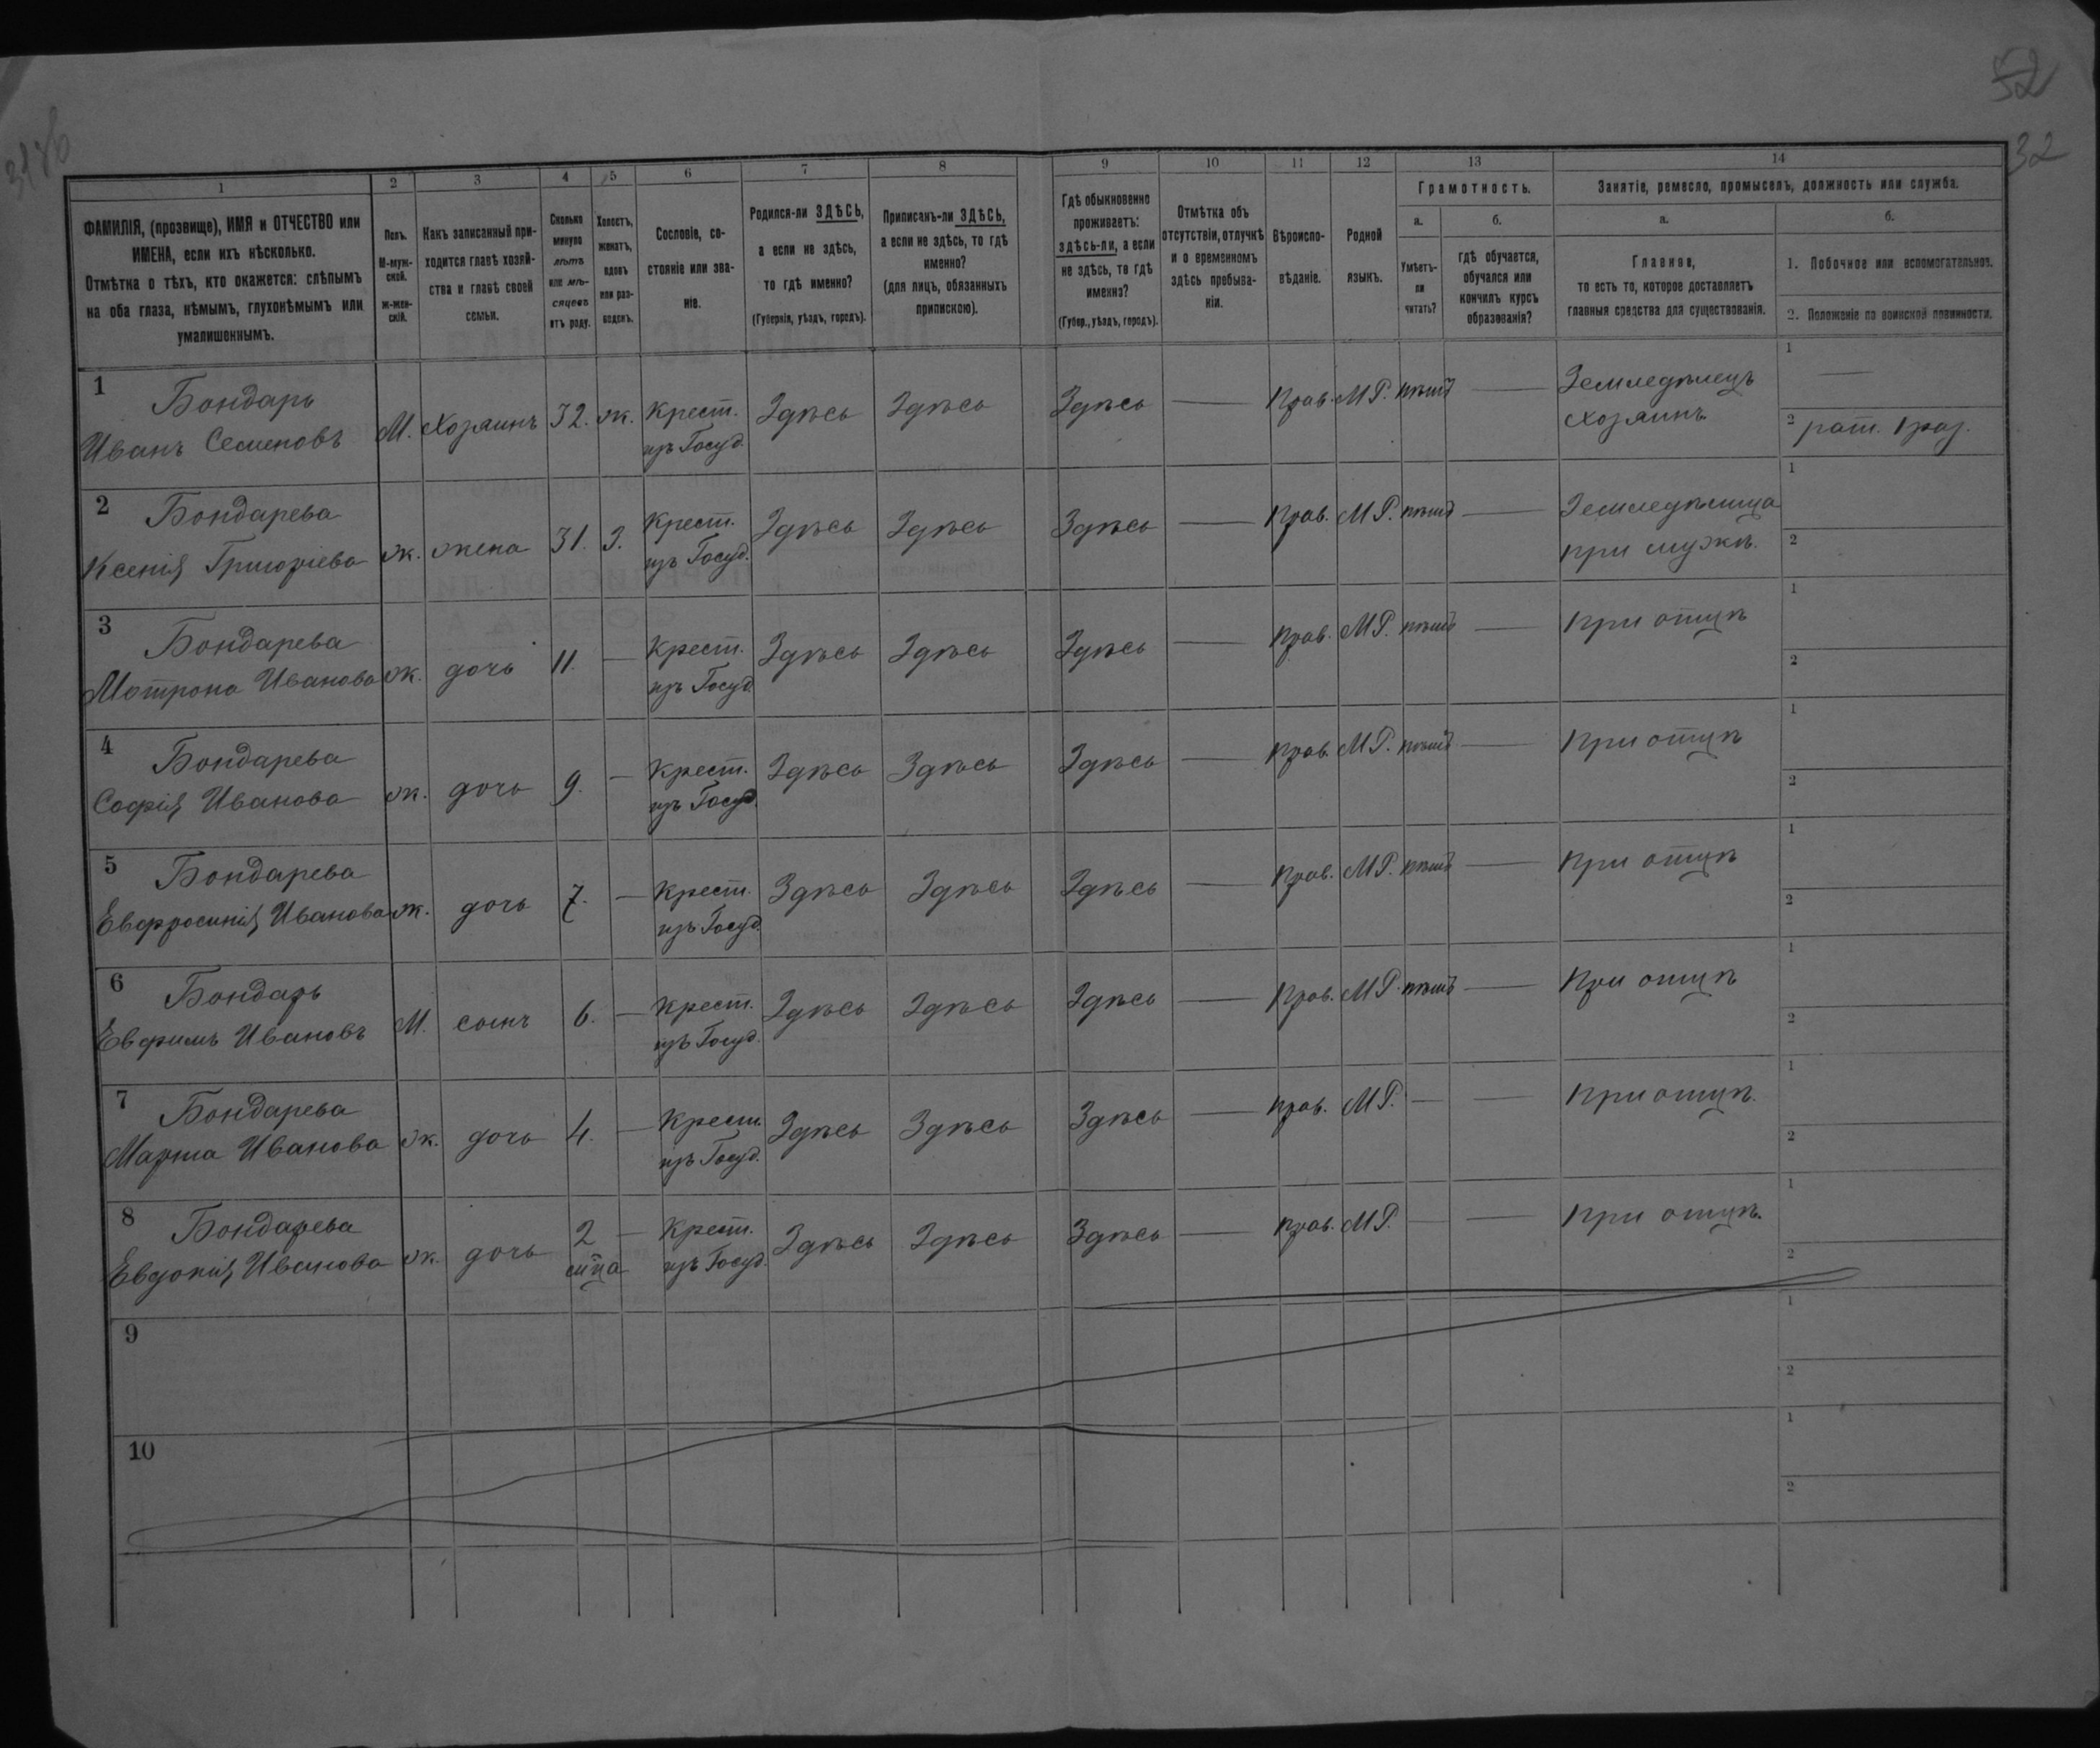 52
32
1 2 3 4 5 6 7 8 9 10 11 12 13 14
ФАМИЛІЯ, (прозвище), ИМЯ и ОТЧЕСТВО или
ИМЕНА, если ихъ нѣсколько.
Отмѣтка о тѣхъ, кто окажется: слѣпымъ
на оба глаза, нѣмымъ, глухонѣмымъ или
умалишеннымъ.
Полъ.
М-муж-
ской.
ж-жен-
скій.
Какъ записанный при-
ходится главѣ хозяй-
ства и главѣ своей
семьи.
Сколько
минуло
лѣтъ
или мѣ-
сяцевъ
отъ роду.
Холостъ,
женатъ,
вдовъ
или раз-
веденъ.
Сословіе, со-
стояніе или зва-
ніе.
Родился-ли ЗДѢСЬ,
а если не здѣсь,
то гдѣ именно?
(Губернія, уѣздъ, городъ).
Приписанъ-ли ЗДѢСЬ,
а если не здѣсь, то гдѣ
именно?
(для лицъ, обязанныхъ
припискою).
Гдѣ обыкновенно
проживаетъ:
здѣсь-ли, а если
не здѣсь, то гдѣ
именно?
(Губер., уѣздъ, городъ).
Отмѣтка объ
отсутствіи, отлучкѣ
и о временномъ
здѣсь пребыва-
ніи.
Вѣроиспо-
вѣданіе.
Родной
языкъ.
Грамотность.
а.
Умѣетъ-
ли
читать?
б.
гдѣ обучается,
обучался или
кончилъ курсъ
образованія?
Занятіе, ремесло, промыселъ, должность или служба.
а.
Главное,
то есть то, которое доставляетъ
главныя средства для существованія.
б.
1. Побочное или вспомогательное.
2. Положеніе по воинской повинности.
1 Бондарь Крест. Земледѣлецъ 1 —
Иванъ Семеновъ М. Хозяинъ 32. ж. изъ Госуд. Здѣсь Здѣсь Здѣсь — Прав. М Р. нѣтъ — хозяинъ 2 рат. 1 раз.
2 Бондарева Крест. Земледѣлица 1
Ксенія Григоріева ж. жена 31. З. изъ Госуд. Здѣсь Здѣсь Здѣсь — Прав. М Р. нѣтъ — при мужѣ. 2
3 Бондарева Крест. 1
Мотрона Иванова ж. дочь 11. — изъ Госуд. Здѣсь Здѣсь Здѣсь — Прав. М Р. нѣтъ — при отцѣ 2
4 Бондарева Крест. 1
Софія Иванова ж. дочь 9. — изъ Госуд. Здѣсь Здѣсь Здѣсь — Прав. М Р. нѣтъ — при отцѣ 2
5 Бондарева Крест. 1
Евфросинія Иванова ж. дочь 7. — изъ Госуд. Здѣсь Здѣсь Здѣсь — Прав. М Р. нѣтъ — при отцѣ 2
6 Бондарь Крест. 1
Евфимъ Ивановъ М. сынъ 6. — изъ Госуд. Здѣсь Здѣсь Здѣсь — Прав. М Р. нѣтъ — При отцѣ 2
7 Бондарева Крест. 1
Марта Иванова ж. дочь 4. — изъ Госуд. Здѣсь Здѣсь Здѣсь — Прав. М Р. — — при отцѣ. 2
8 Бондарева 2 Крест. 1
Евдокія Иванова ж. дочь — изъ Госуд. Здѣсь Здѣсь Здѣсь — Прав. М Р. — — при отцѣ. 2
9 1
2
10 1
2